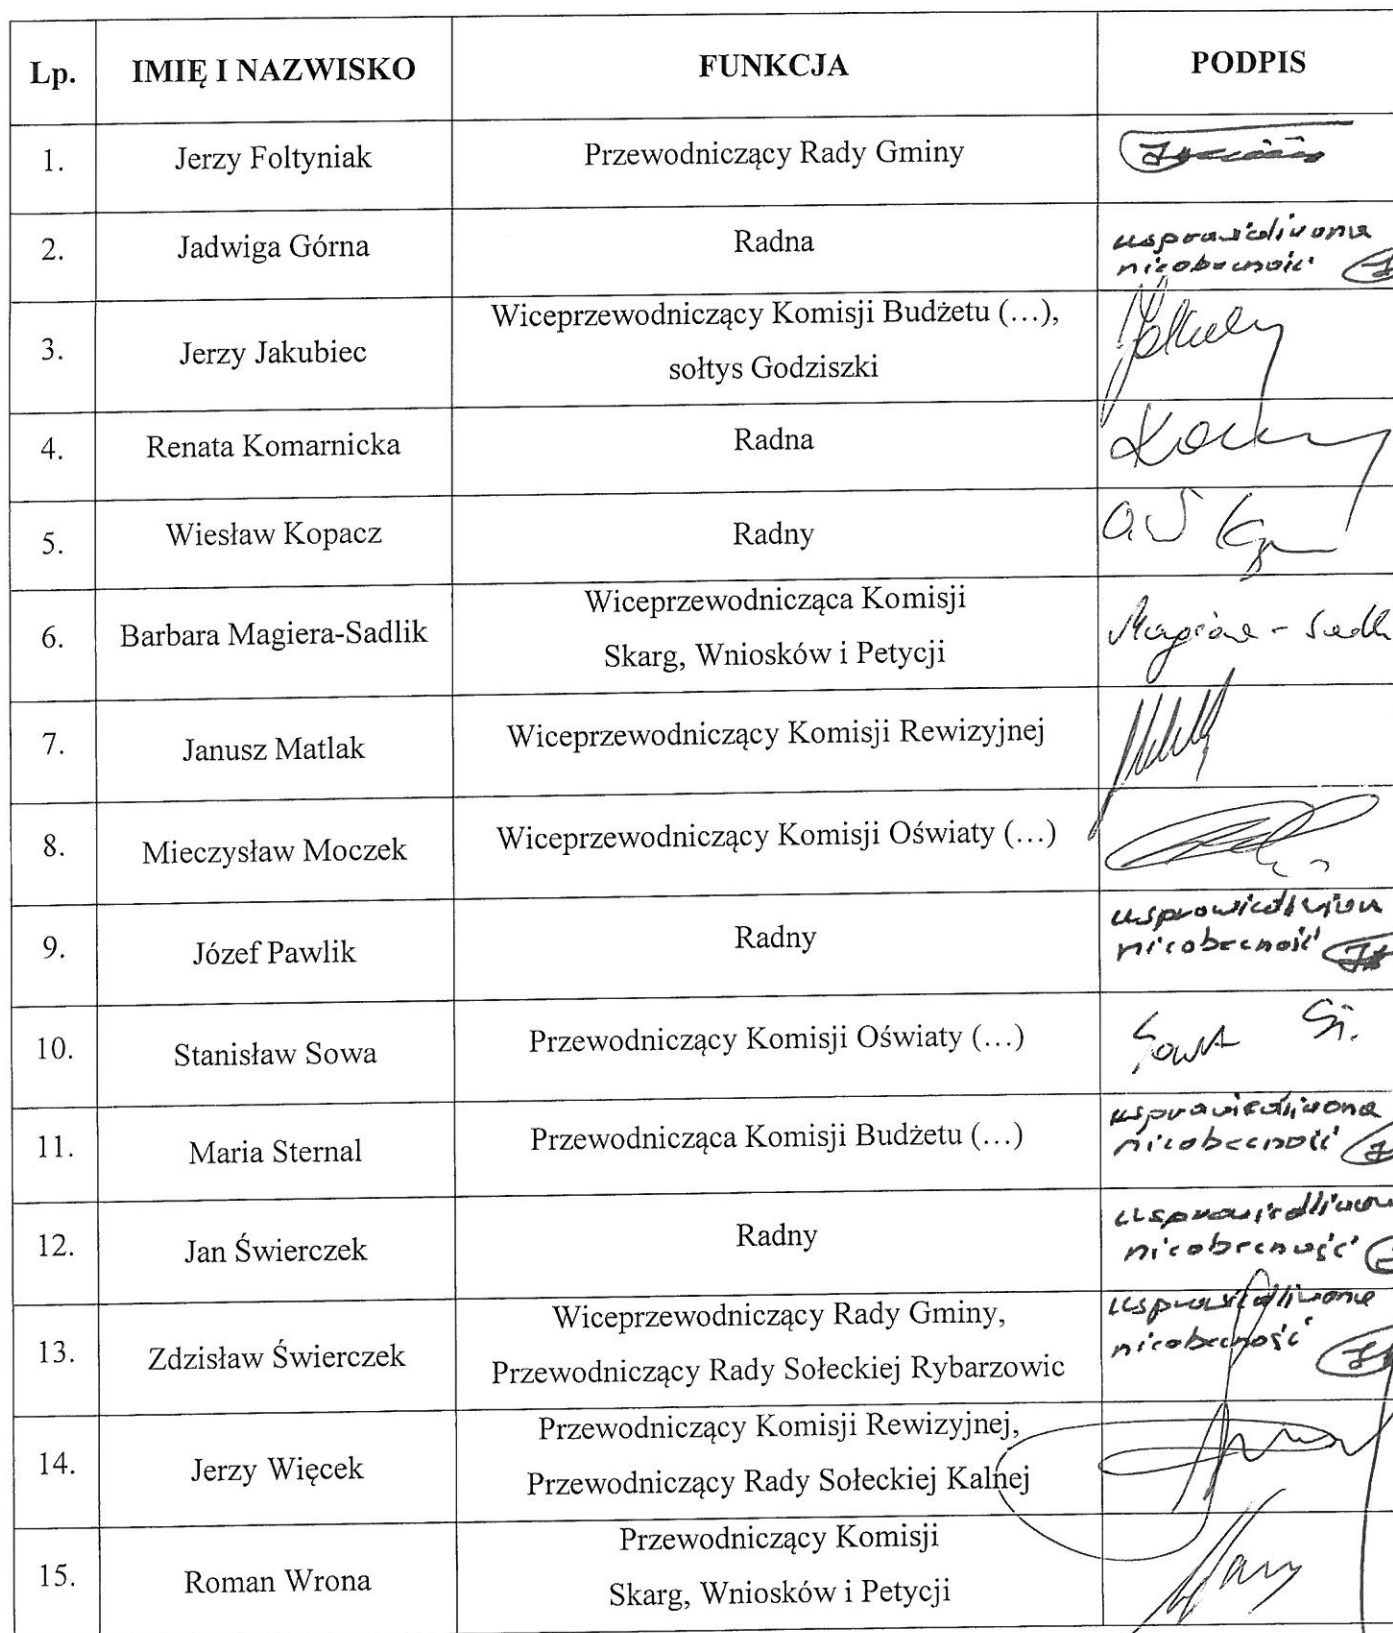 Lp. IMIĘ I NAZWISKO FUNKCJA PODPIS
1. Jerzy Foltyniak Przewodniczący Rady Gminy
2. Jadwiga Górna Radna usprawiedliwiona
nieobecność
3. Jerzy Jakubiec Wiceprzewodniczący Komisji Budżetu (…),
sołtys Godziszki
4. Renata Komarnicka Radna
5. Wiesław Kopacz Radny
6. Barbara Magiera-Sadlik Wiceprzewodnicząca Komisji
Skarg, Wniosków i Petycji
7. Janusz Matlak Wiceprzewodniczący Komisji Rewizyjnej
8. Mieczysław Moczek Wiceprzewodniczący Komisji Oświaty (…)
9. Józef Pawlik Radny
nieobecność
10. Stanisław Sowa Przewodniczący Komisji Oświaty (…) Sowa St.
11. Maria Sternal Przewodnicząca Komisji Budżetu (…) usprawiedliwiona
nieobecność
12. Jan Świerczek Radny
nieobecność
13. Zdzisław Świerczek Wiceprzewodniczący Rady Gminy, usprawiedliwiona
Przewodniczący Rady Sołeckiej Rybarzowic nieobecność
14. Jerzy Więcek Przewodniczący Komisji Rewizyjnej,
Przewodniczący Rady Sołeckiej Kalnej
15. Roman Wrona Przewodniczący Komisji
Skarg, Wniosków i Petycji